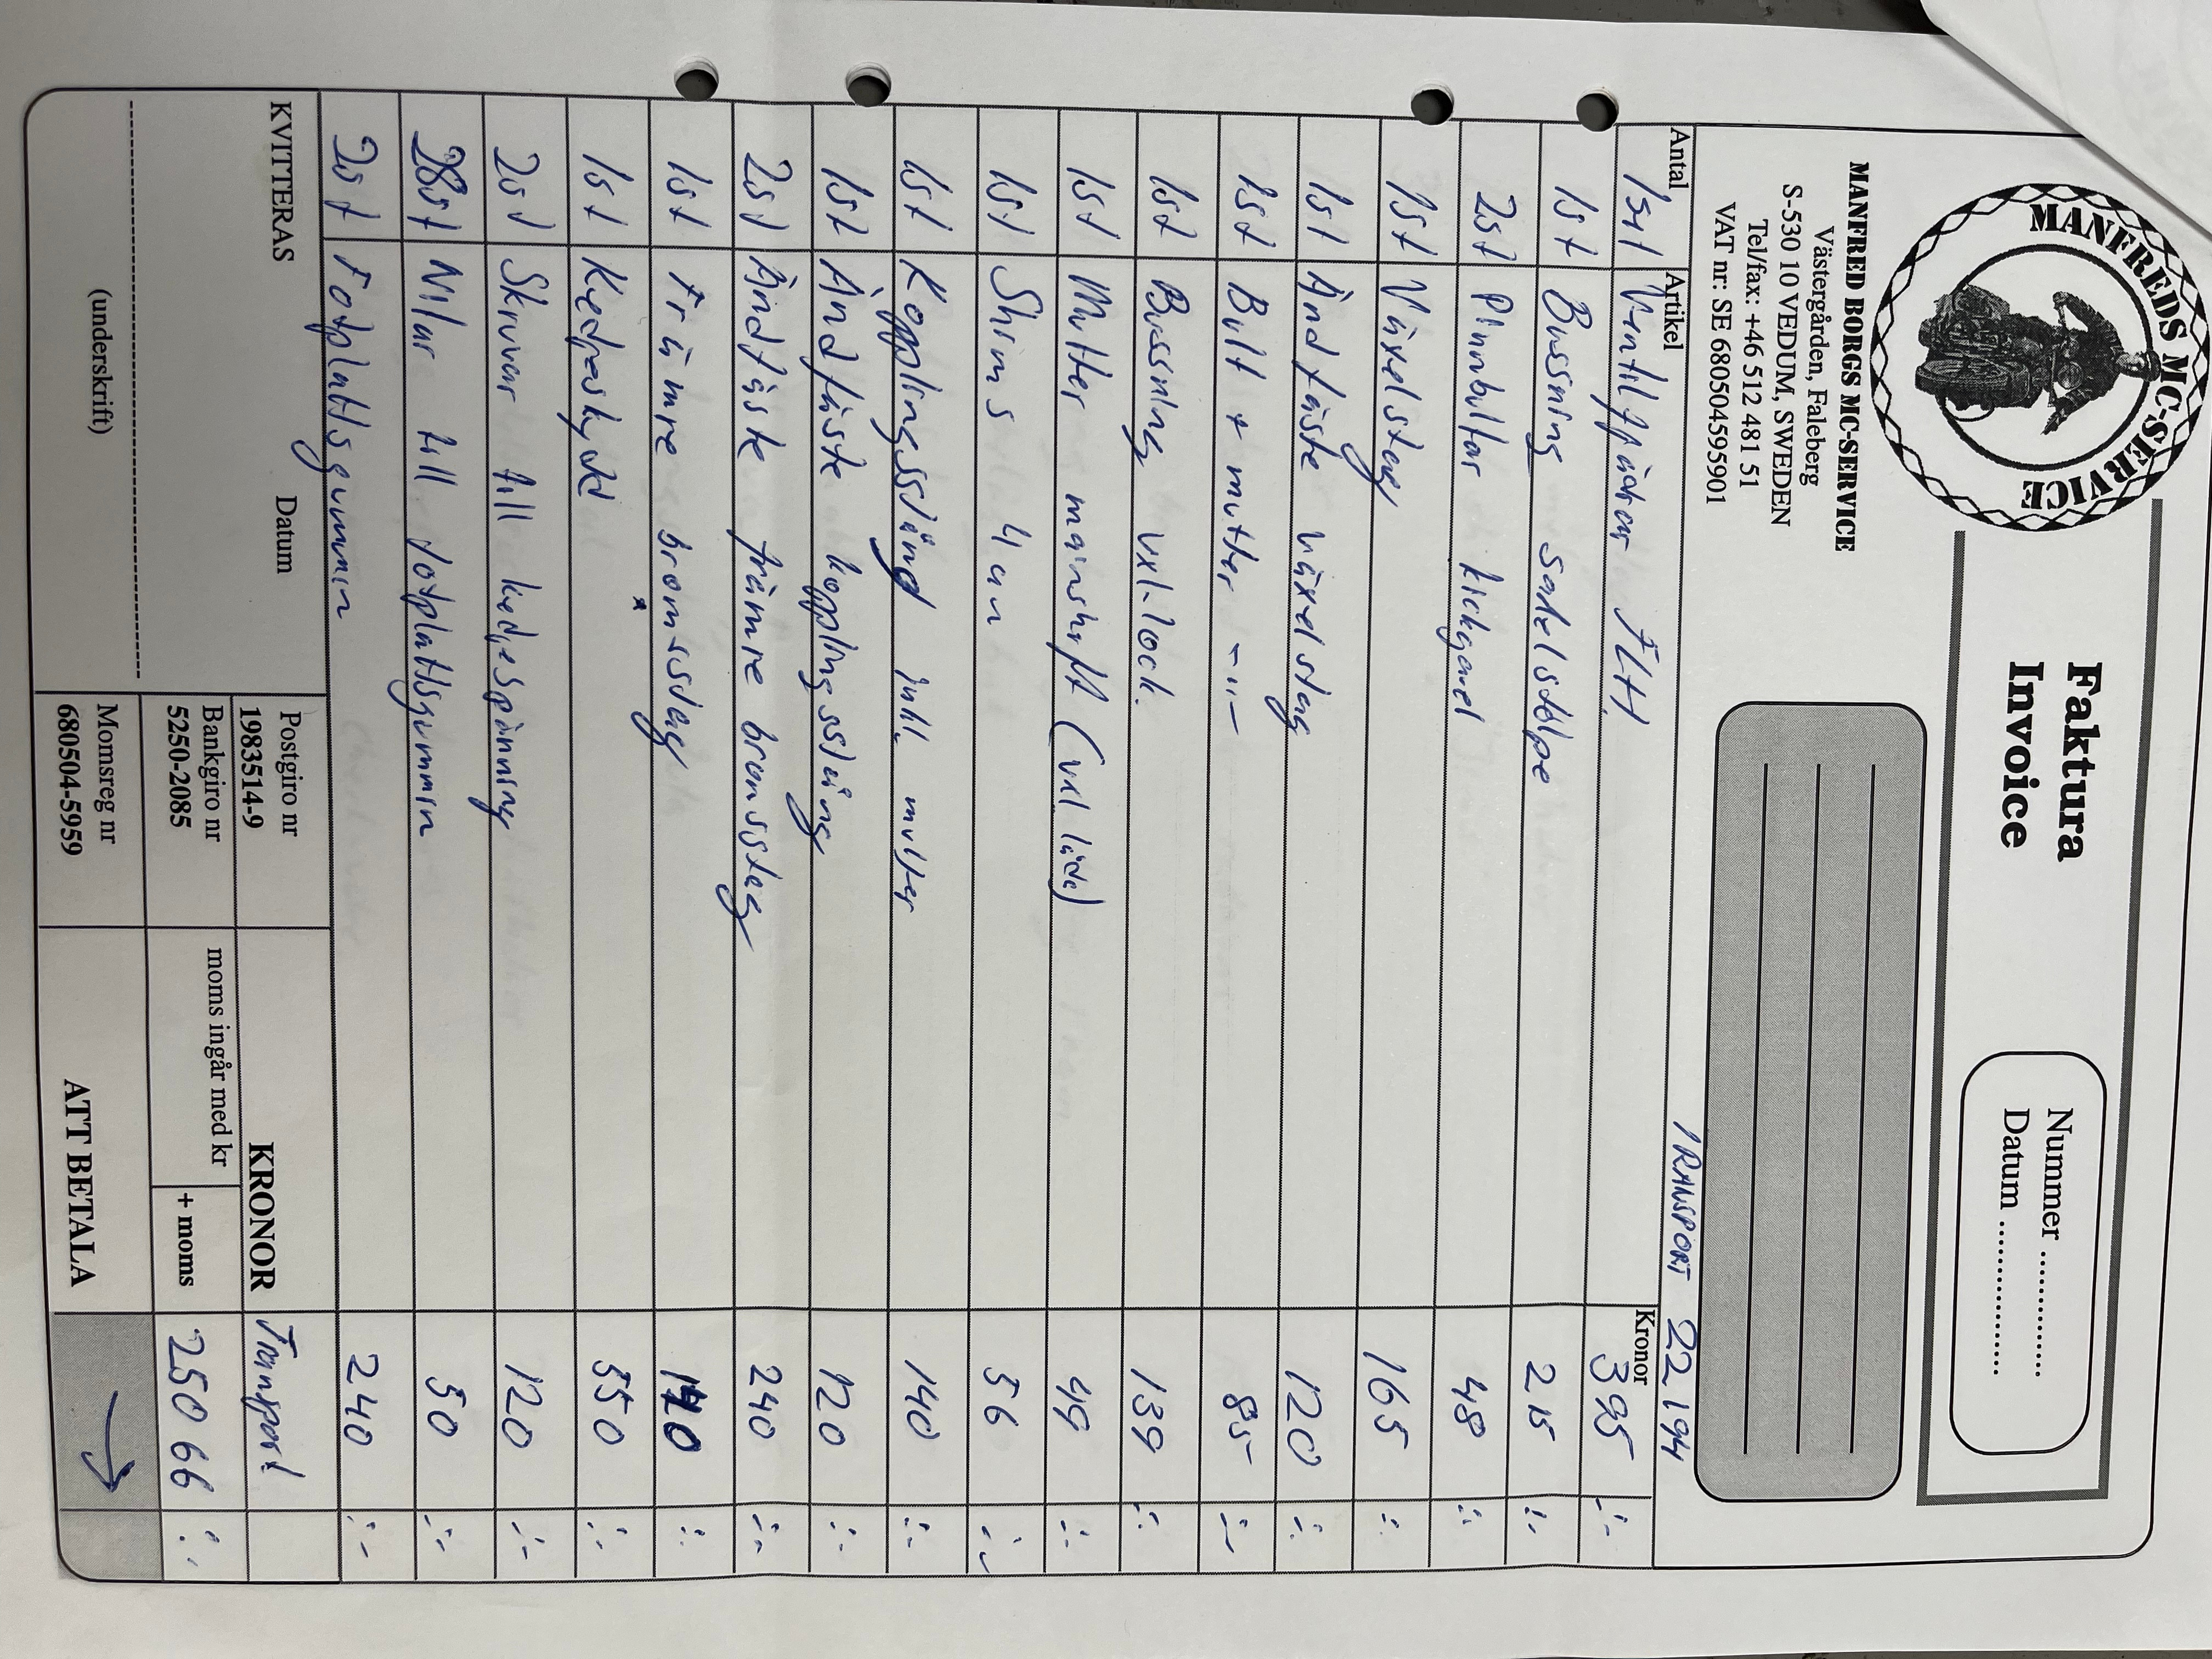 MANFREDS MC-SERVICE
Faktura
Invoice
Nummer ..............
Datum ................
MANFRED BORGS MC-SERVICE
Västergården, Faleberg
S-530 10 VEDUM, SWEDEN
Tel/fax: +46 512 481 51
VAT nr: SE 680504595901
TRANSPORT 22194
Antal Artikel Kronor
1st Ventilfjädrar FLH 395 :-
1st Bussning sadelstolpe 215 :-
2st Pinnbultar kickgavel 48 :-
1st Växelstag 165 :-
1st Ändfäste växelstag 120 :-
1st Bult + mutter -"- 85 :-
1st Bussning vxl-lock 139 :-
1st Mutter mainshaft (vxl låda) 49 :-
1st Shims 4an 56 :-
1st Kopplingsstång inkl mutter 140 :-
1st Ändfäste kopplingsstång 120 :-
2st Ändfäste främre bromsstag 240 :-
1st Främre bromsstag :-
1st Kedjeskydd 550 :-
2st Skruvar till kedjespänning 120 :-
28st Nitar till fotplattsgummin 50 :-
2st Fotplattsgummin 240 :-
KVITTERAS Datum
(underskrift)
Postgiro nr
1983514-9
Bankgiro nr
5250-2085
Momsreg nr
680504-5959
KRONOR Transport
moms ingår med kr + moms 25066 :-
ATT BETALA →